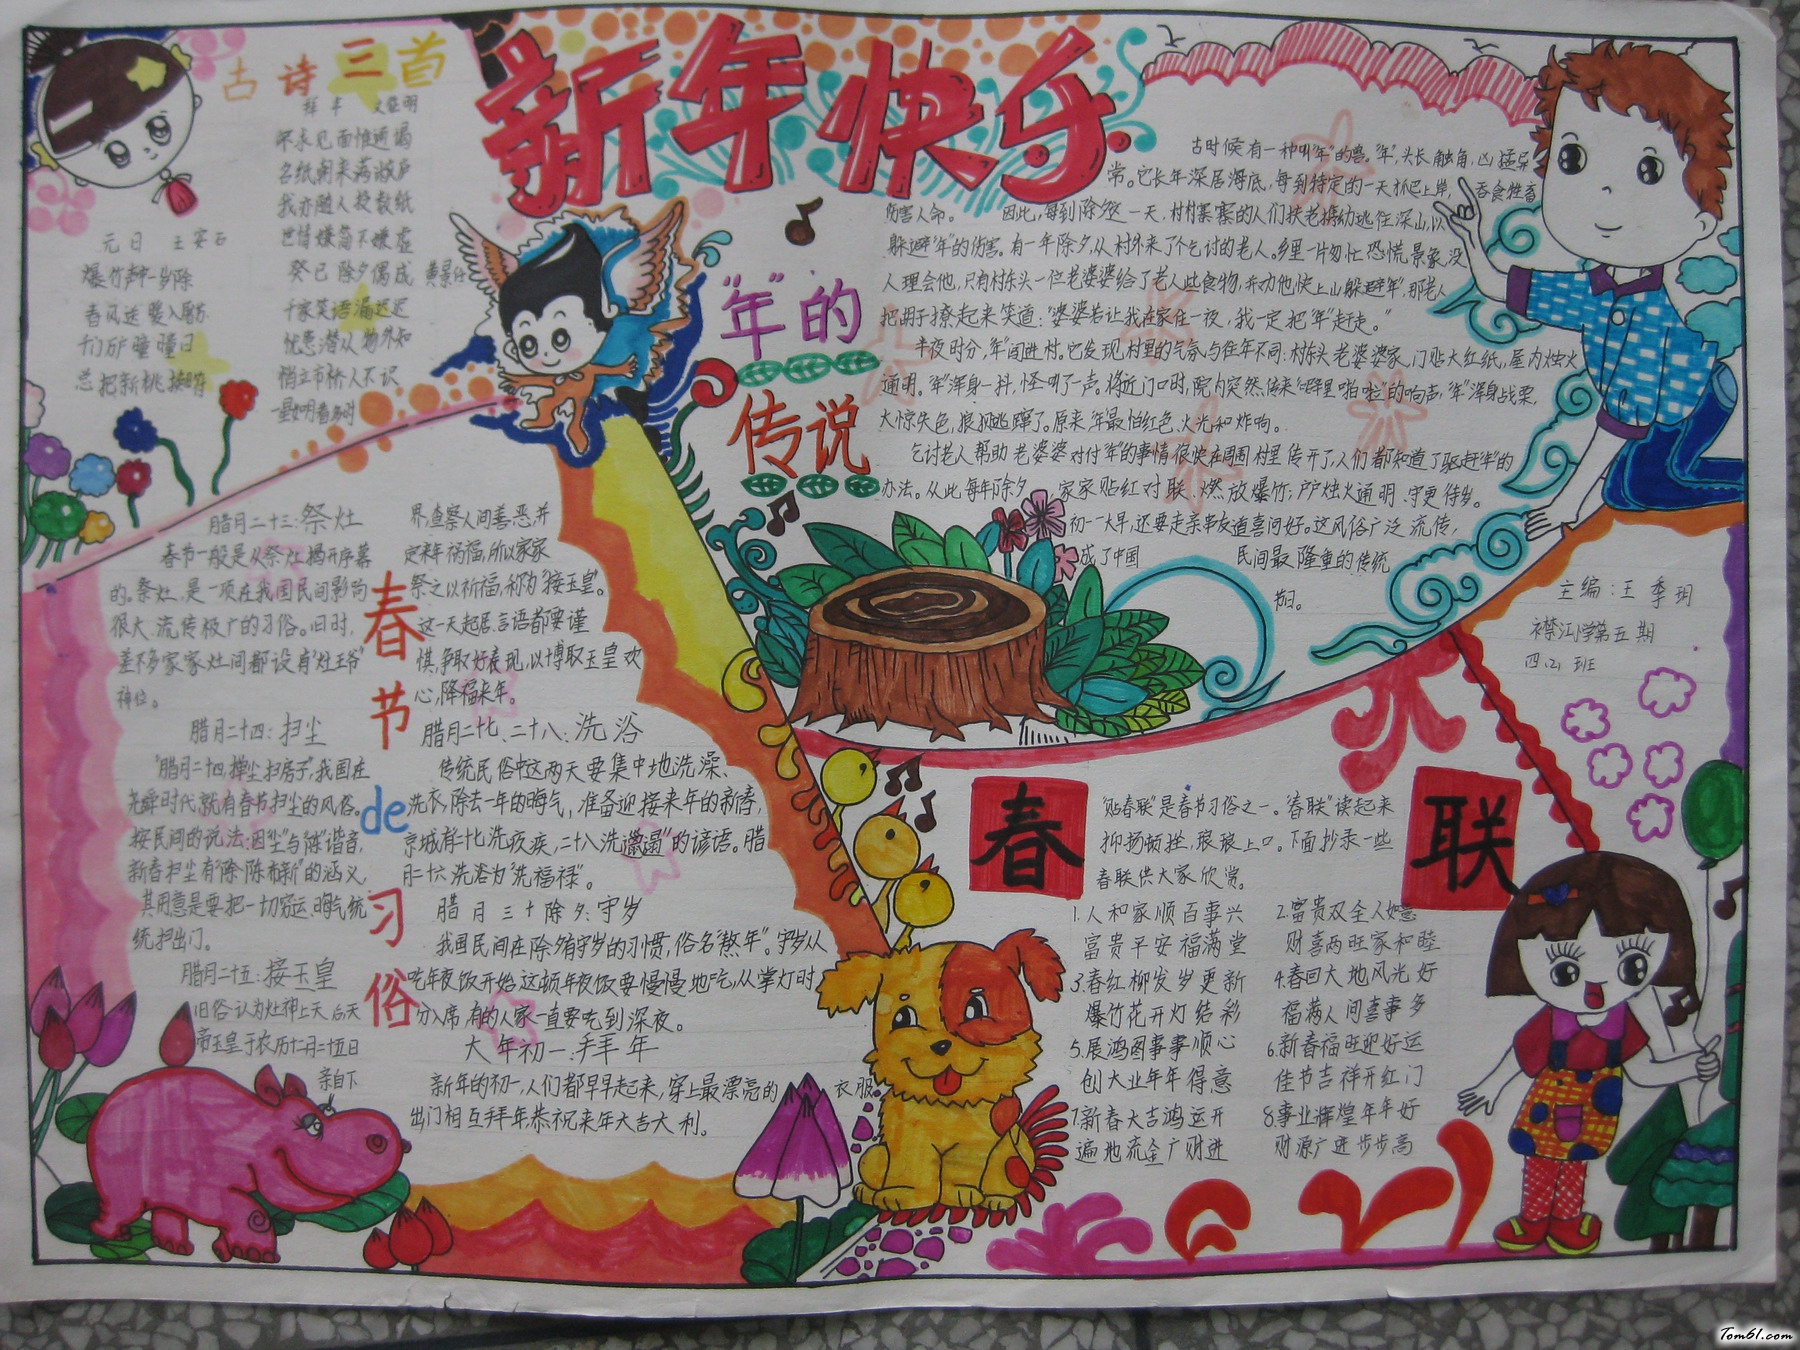 新年快乐
古诗三首
拜年 文徵明
不求见面惟通谒
名纸朝来满敝庐
我亦随人投数纸
世情嫌简不嫌虚
元日 王安石
爆竹声中一岁除
春风送暖入屠苏
千门万户曈曈日
总把新桃换旧符
癸已除夕偶成 黄景仁
千家笑语漏迟迟
忧患潜从物外知
悄立市桥人不识
一星如月看多时
"年"的
传说
古时候有一种叫"年"的兽。"年",头长触角,凶猛异
常。它长年深居海底,每到特定的一天才爬上岸,吞食牲畜
伤害人命。 因此,每到除夕这一天,村村寨寨的人们扶老携幼逃往深山,以
躲避"年"的伤害。有一年除夕,从村外来了个乞讨的老人。乡里一片匆忙恐慌景象,没
人理会他,只有村东头一位老婆婆给了老人些食物,并劝他快上山躲避"年",那老人
把胡子撩起来笑道:"婆婆若让我在家住一夜,我一定把"年"赶走。"
半夜时分,"年"闯进村。它发现村里的气氛与往年不同:村东头老婆婆家,门贴大红纸,屋内烛火
通明。"年"浑身一抖,怪叫了一声。将近门口时,院内突然传来"噼里啪啦"的响声,"年"浑身战栗,
大惊失色,狼狈逃蹿了。原来"年"最怕红色、火光和炸响。
乞讨老人帮助老婆婆对付"年"的事情很快在周围村里传开了,人们都知道了驱赶"年"的
办法。从此每年除夕 家家贴红对联、燃放爆竹;户户烛火通明、守更待岁。
初一一大早,还要走亲串友道喜问好。这风俗广泛流传,
成了中国 民间最隆重的传统
节日。
主编:王季玥
襟江小学第五期
四.2)班
春节de习俗
腊月二十三:祭灶
春节一般是从祭灶揭开序幕
的。祭灶,是一项在我国民间影响
很大、流传极广的习俗。旧时,
差不多家家灶间都设有"灶王爷"
神位。
腊月二十四:扫尘
"腊月二十四,掸尘扫房子",我国在
尧舜时代就有春节扫尘的风俗。
按民间的说法:因"尘"与"陈"谐音,
新春扫尘有"除陈布新"的涵义,
其用意是要把一切穷运、晦气统
统扫出门。
腊月二十五:接玉皇
旧俗认为灶神上天后,天
帝玉皇于农历十二月二十五日
亲自下
界,查察人间善恶,并
定来年祸福,所以家家
祭之以祈福,称为"接玉皇"。
这一天起居、言语都要谨
慎,争取好表现,以博取玉皇欢
心,降福来年。
腊月二十七、二十八:洗浴
传统民俗中这两天要集中地洗澡、
洗衣,除去一年的晦气,准备迎接来年的新春,
京城有"二十七洗疚疾,二十八洗邋遢"的谚语。腊
月二十六洗浴为"洗福禄"。
腊月三十除夕:守岁
我国民间在除夕有守岁的习惯,俗名"熬年"。守岁从
吃年夜饭开始,这顿年夜饭要慢慢地吃,从掌灯时
分入席,有的人家一直要吃到深夜。
大年初一:拜年
新年的初一,人们都早早起来,穿上最漂亮的 衣服
出门相互拜年,恭祝来年大吉大利。
春联
"贴春联"是春节习俗之一。"春联"读起来
抑扬顿挫,琅琅上口。下面抄录一些
春联供大家欣赏。
1.人和家顺百事兴
富贵平安福满堂
2.富贵双全人如意
财喜两旺家和睦
3.春红柳发岁更新
爆竹花开灯结彩
4.春回大地风光好
福满人间喜事多
5.展鸿图事事顺心
创大业年年得意
6.新春福旺迎好运
佳节吉祥开红门
7.新春大吉鸿运开
遍地流金广财进
8.事业辉煌年年好
财源广进步步高
Tom61.com